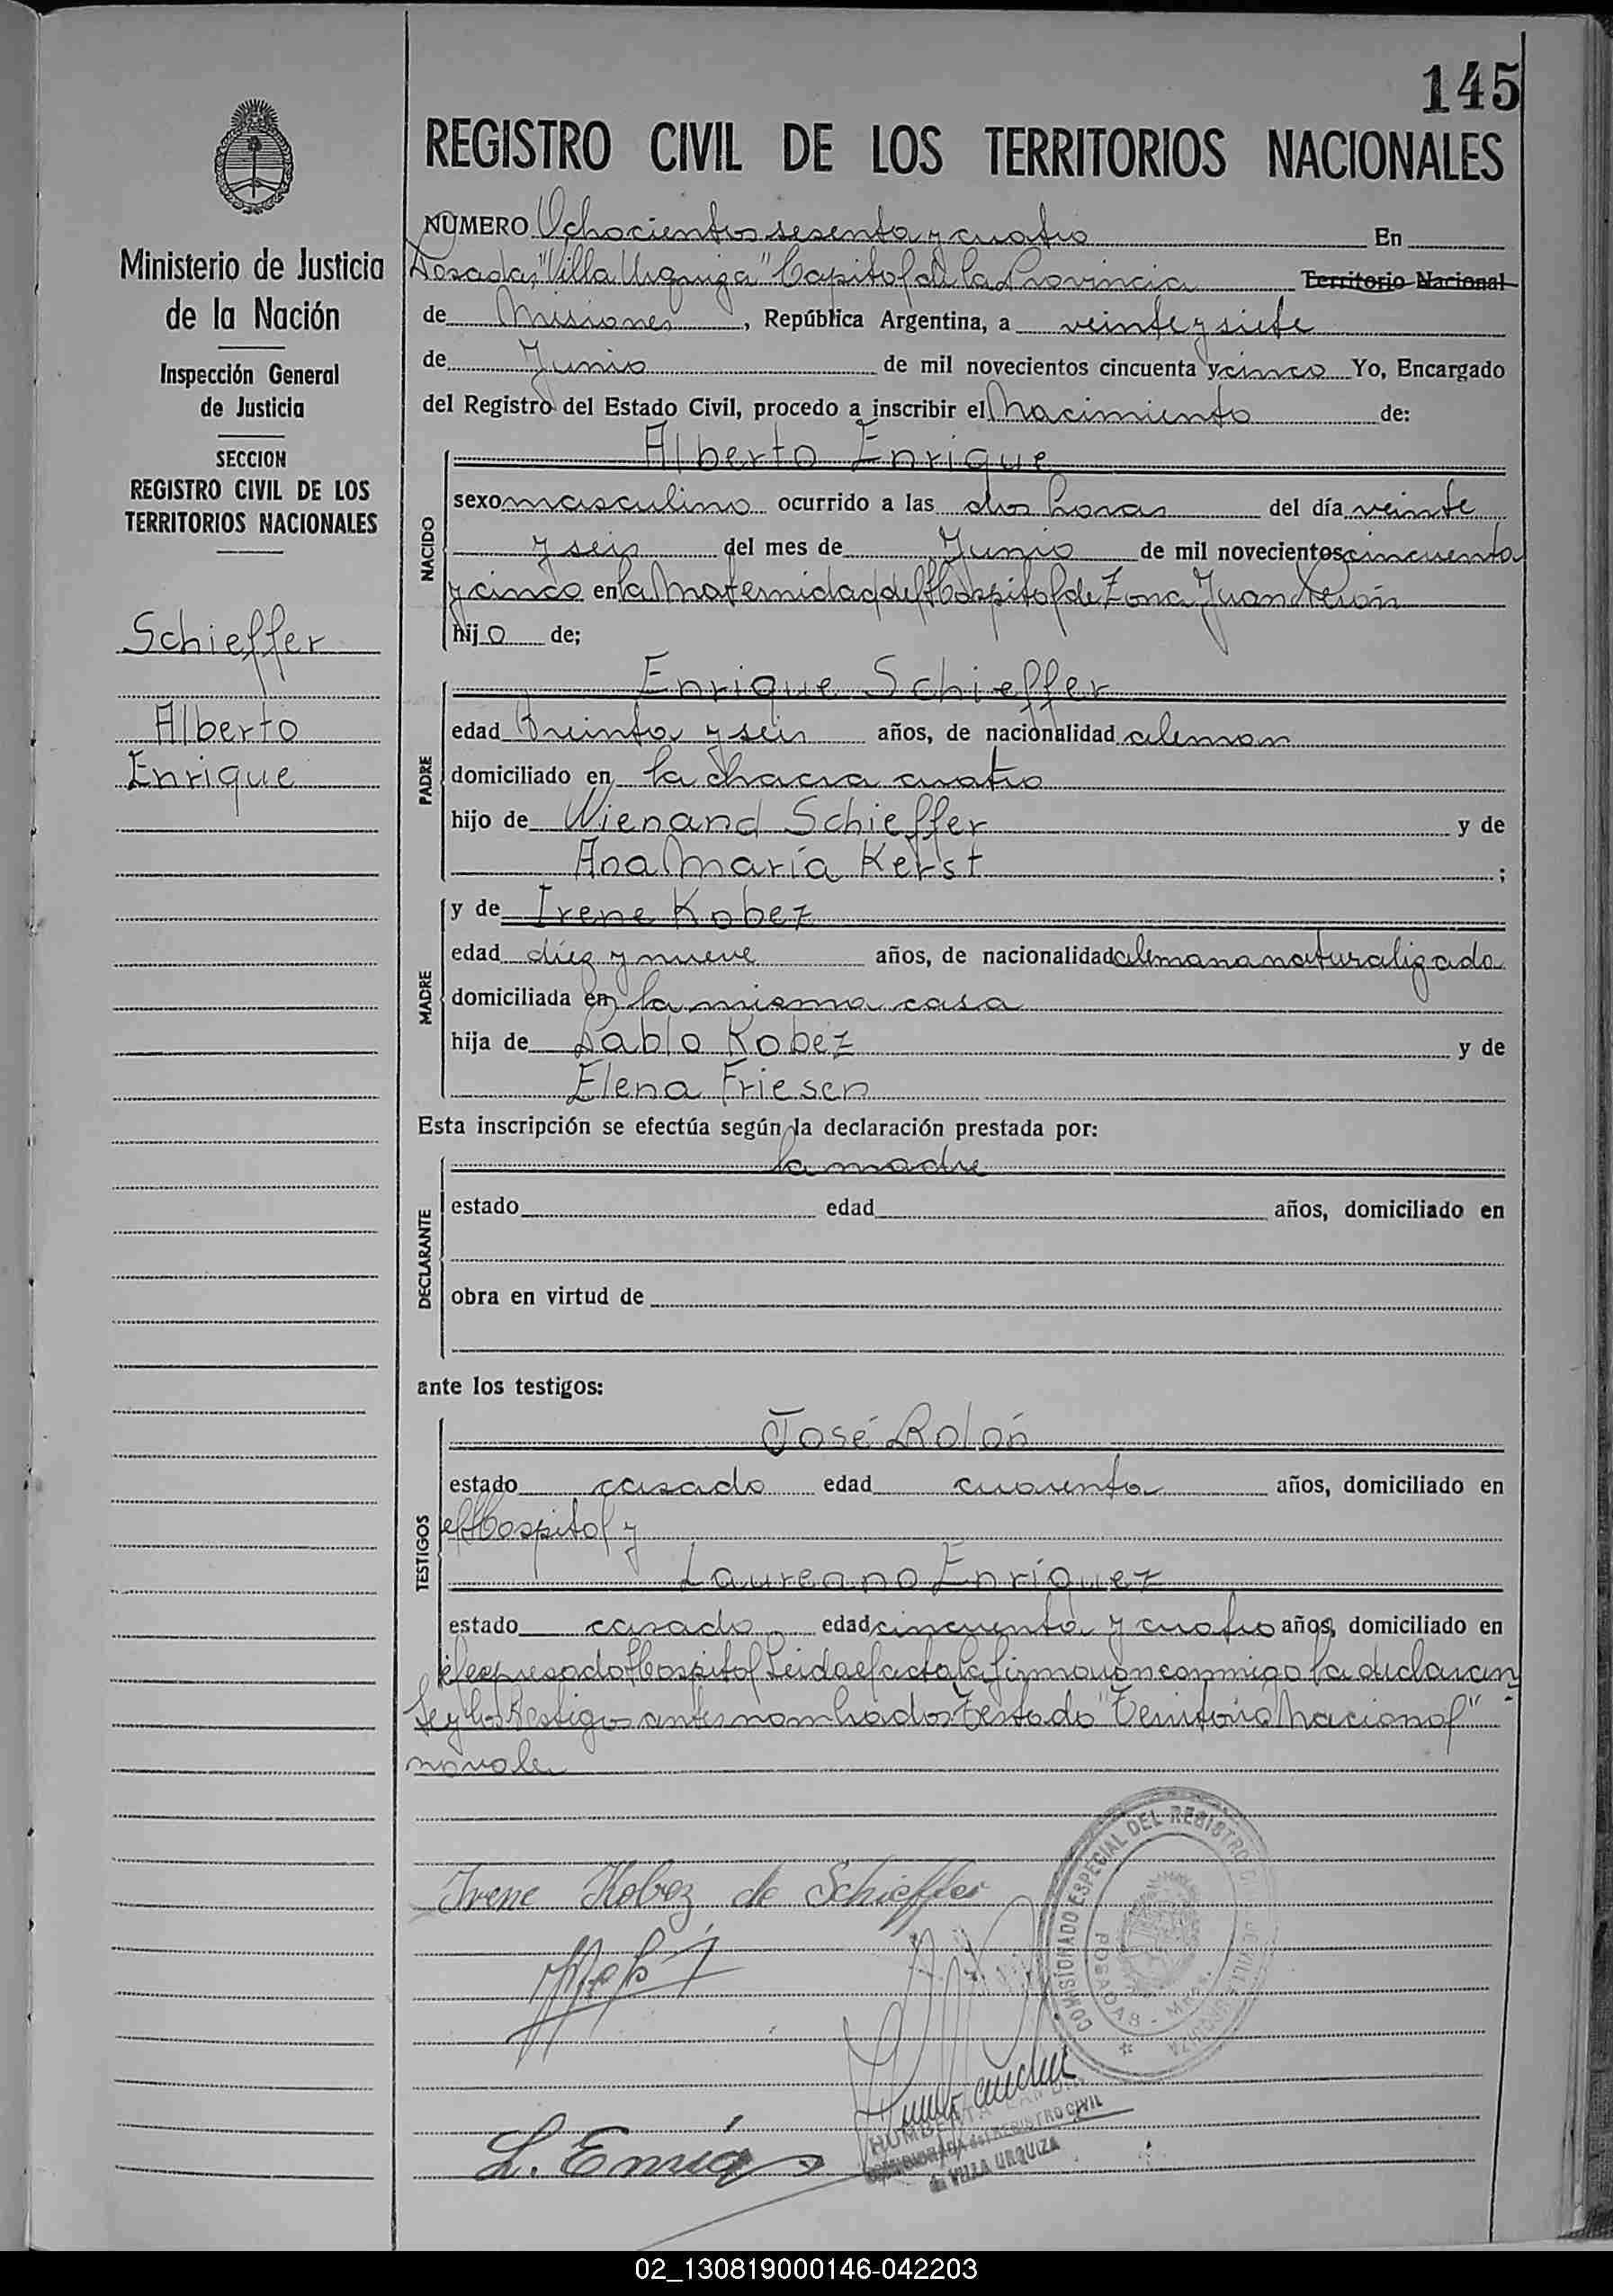 145
REGISTRO CIVIL DE LOS TERRITORIOS NACIONALES
Ministerio de Justicia
de la Nación
Inspección General
de Justicia
SECCION
REGISTRO CIVIL DE LOS
TERRITORIOS NACIONALES
Schieffer
Alberto
Enrique
NUMERO Ochocientos sesenta y cuatro En
Posadas, "Villa Urquiza" Capital de la Provincia Territorio Nacional
de Misiones, República Argentina, a veinte y siete
de Junio de mil novecientos cincuenta y cinco Yo, Encargado
del Registro del Estado Civil, procedo a inscribir el Nacimiento de:
NACIDO
Alberto Enrique
sexo masculino ocurrido a las dos horas del día veinte
y seis del mes de Junio de mil novecientos cincuenta
y cinco en la Maternidad del Hospital de Zona Juan Perón
hijo de;
PADRE
Enrique Schieffer
edad treinta y seis años, de nacionalidad aleman
domiciliado en la chacra cuatro
hijo de Wienand Schieffer y de
Ana Maria Kerst ;
MADRE
y de Irene Kobez
edad diez y nueve años, de nacionalidad alemana naturalizada
domiciliada en la misma casa
hija de Pablo Kobez y de
Elena Friesen
Esta inscripción se efectúa según la declaración prestada por:
DECLARANTE
la madre
estado edad años, domiciliado en
obra en virtud de
ante los testigos:
TESTIGOS
José Rolón
estado casado edad cuarenta años, domiciliado en
el Hospital y
Laureano Enriquez
estado casado edad cincuenta y cuatro años, domiciliado en
el expresado Hospital Leida el acta la firmaron conmigo la declaran
te y los testigos antes nombrados Testado "Territorio Nacional"
no vale
Irene Kobez de Schieffer
COMISIONADO ESPECIAL DEL REGISTRO CIVIL
POSADAS - Mnes.
L. Enriq
REGISTRO CIVIL
de VILLA URQUIZA
02_130819000146-042203